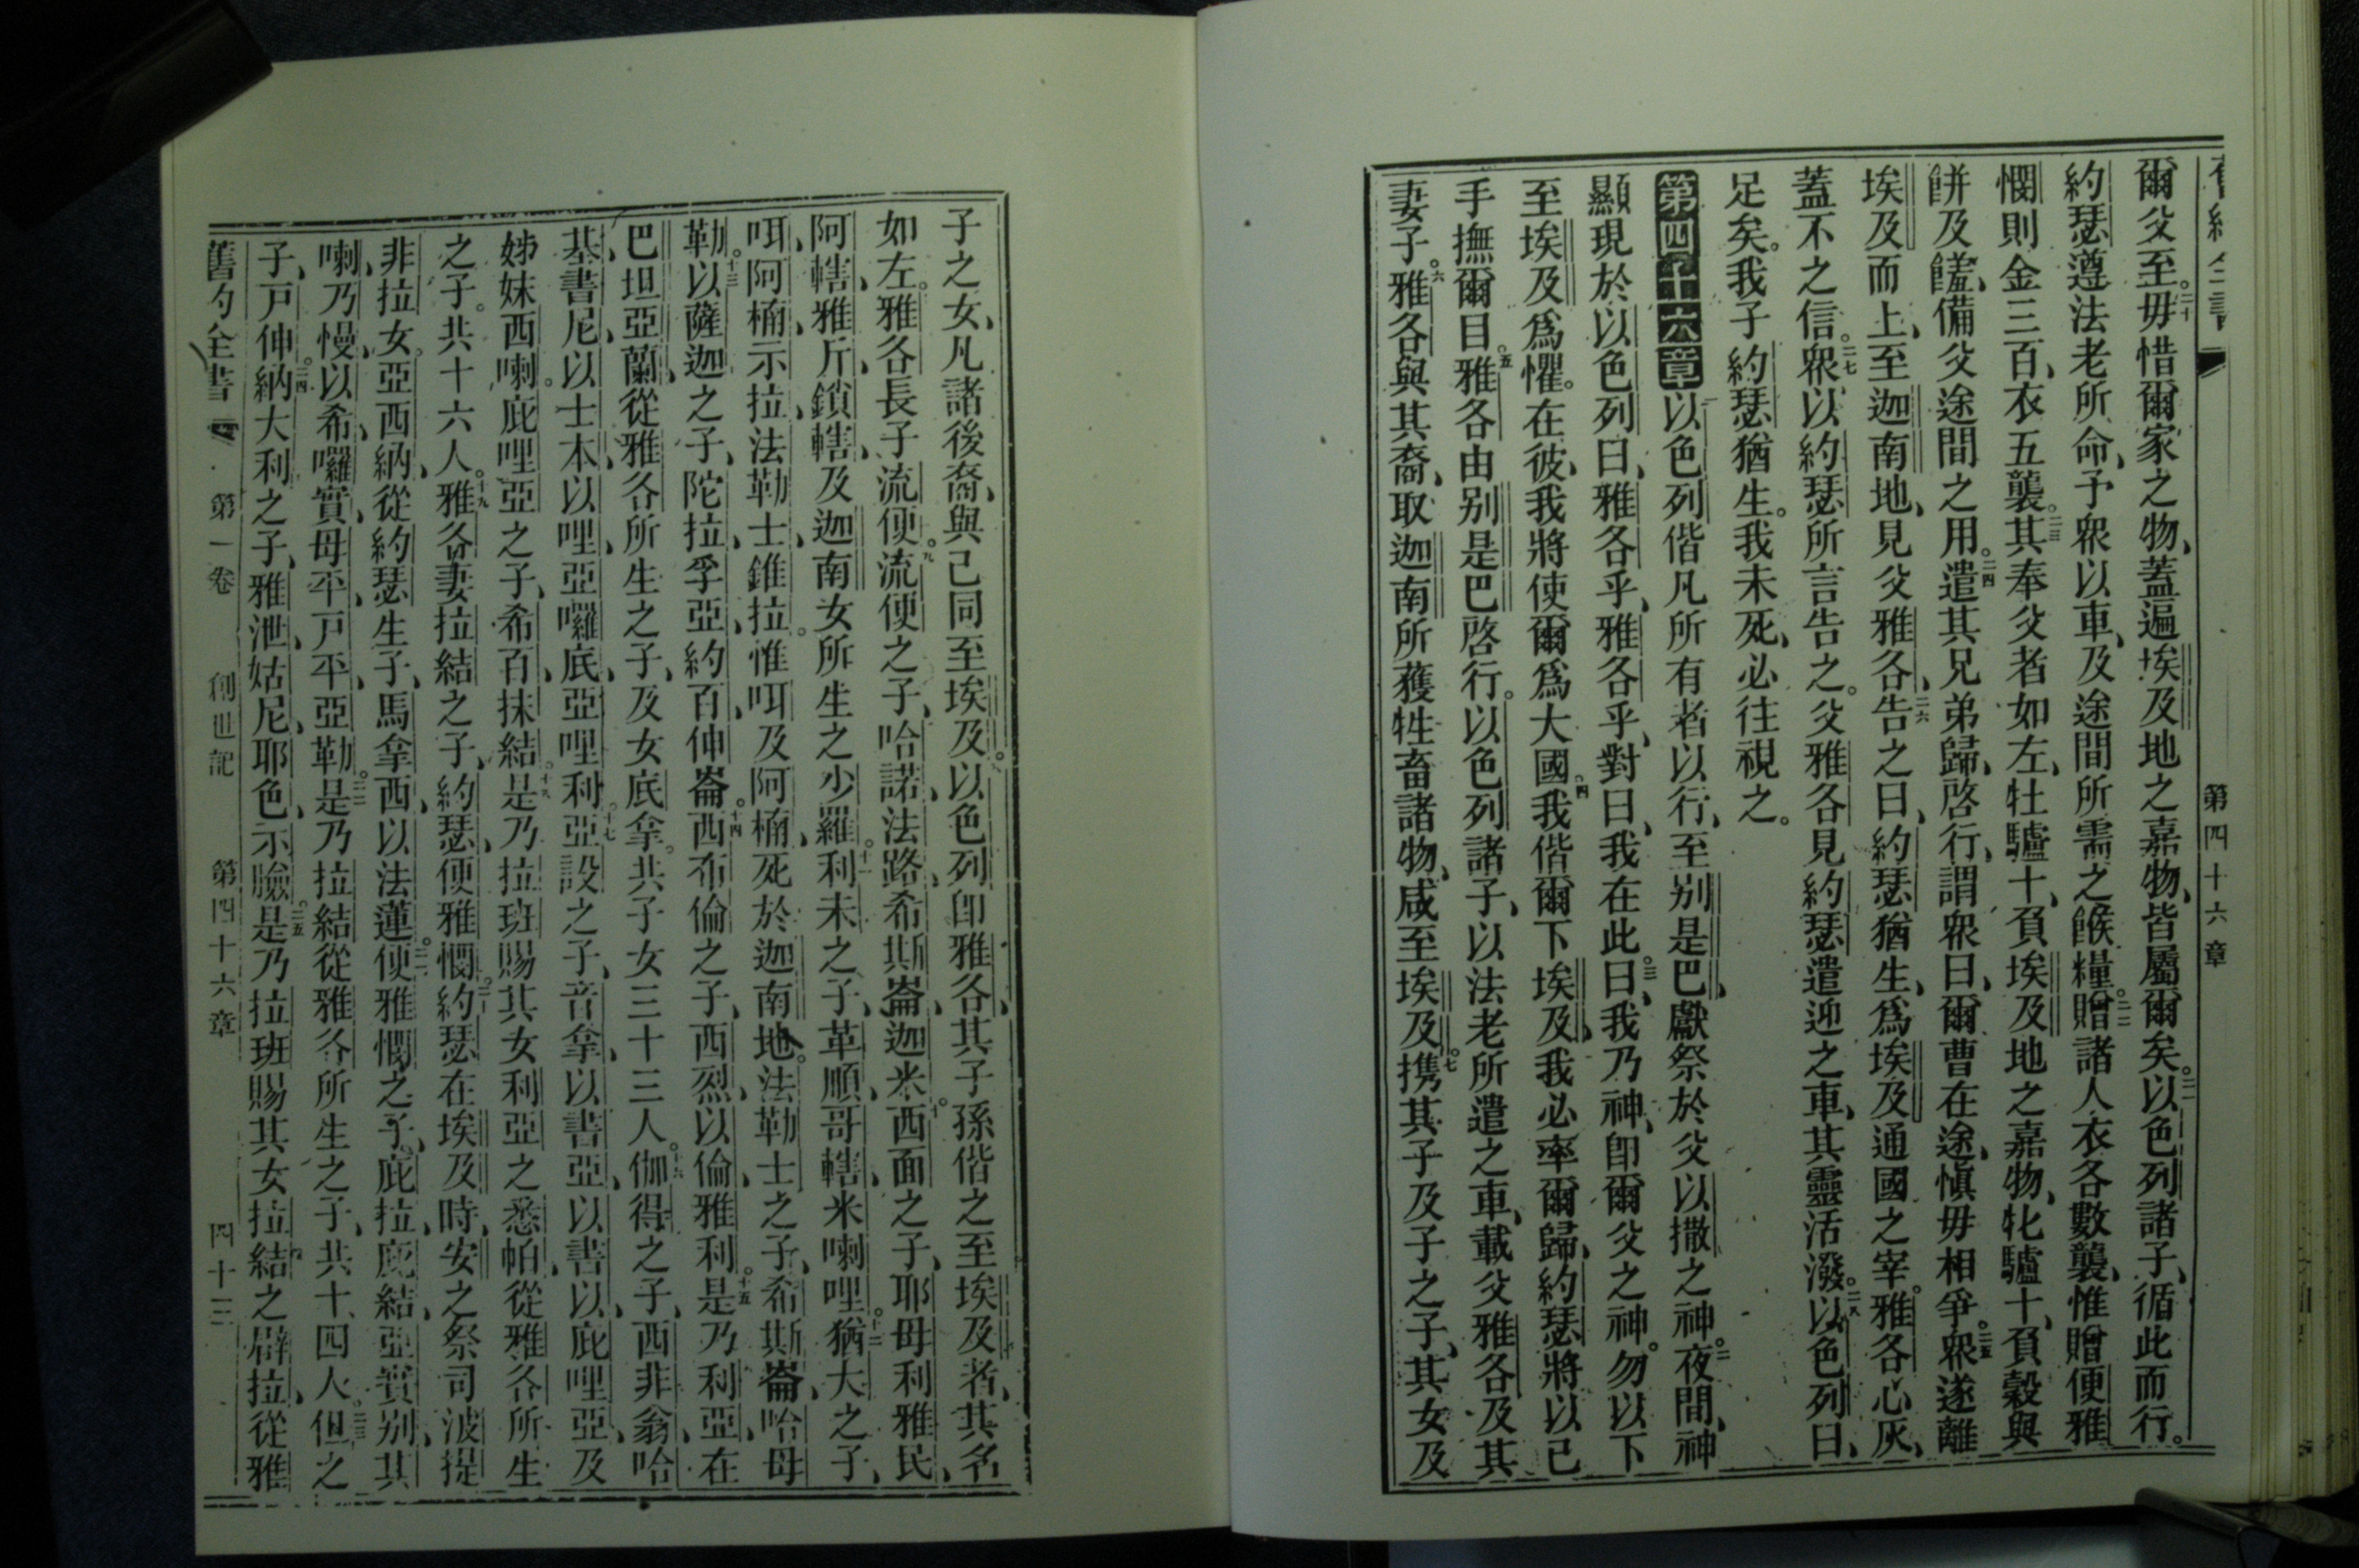 第四十六章
爾父至。二十毋惜爾家之物、蓋遍埃及地之嘉物、皆屬爾矣。二一以色列諸子、循此而行。
約瑟遵法老所命、予衆以車、及途間所需之餱糧。二二贈諸人衣各數襲、惟贈便雅
憫則金三百、衣五襲。二三其奉父者如左、牡驢十、負埃及地之嘉物、牝驢十、負穀與
餅及饈、備父途間之用。二四遣其兄弟歸、啓行、謂衆曰、爾曹在途、愼毋相爭。二五衆遂離
埃及而上、至迦南地、見父雅各、二六告之曰、約瑟猶生、爲埃及通國之宰。雅各心灰、
蓋不之信。二七衆以約瑟所言告之。父雅各見約瑟遣迎之車、其靈活潑。二八以色列曰、
足矣。我子約瑟猶生。我未死、必往視之。
第四十六章 以色列偕凡所有者以行、至别是巴、獻祭於父以撒之神。二夜間、神
顯現於以色列曰、雅各乎、雅各乎、對曰、我在此。三曰、我乃神、卽爾父之神。勿以下
至埃及爲懼。在彼、我將使爾爲大國。四我偕爾下埃及、我必率爾歸、約瑟將以己
手撫爾目。五雅各由别是巴啓行。以色列諸子、以法老所遣之車、載父雅各及其
妻子。六雅各與其裔、取迦南所獲牲畜諸物、咸至埃及。七携其子及子之子、其女及
子之女、凡諸後裔、與己同至埃及。以色列卽雅各、其子孫偕之至埃及者、其名
如左。雅各長子流便。九流便之子、哈諾、法路、希斯崙、迦米。十西面之子、耶毋利、雅民、
阿轄、雅斤、鎖轄、及迦南女所生之少羅。十一利未之子、革順、哥轄、米喇哩。十二猶大之子、
咡、阿桶、示拉、法勒士、錐拉。惟咡及阿桶、死於迦南地。法勒士之子、希斯崙、哈母
勒。十三以薩迦之子、陀拉、孚亞、約百、伸崙。十四西布倫之子、西烈、以倫、雅利。十五是乃利亞、在
巴坦亞蘭、從雅各所生之子、及女底拿。共子女三十三人。十六伽得之子、西非翁、哈
基、書尼、以士本、以哩、亞囉底、亞哩利。十七亞設之子、音拿、以書亞、以書以、庇哩亞、及
姊妹西喇。庇哩亞之子、希百、抹結。十八是乃拉班賜其女利亞之悉帕、從雅各所生
之子。共十六人。十九雅各妻拉結之子、約瑟、便雅憫。二十約瑟在埃及時、安之祭司波提
非拉女、亞西納、從約瑟生子、馬拿西、以法蓮。二一便雅憫之子、庇拉、庇結、亞實别、其
喇、乃慢、以希、囉實、母平、戸平、亞勒。二二是乃拉結從雅各所生之子、共十四人。二三但之
子、戸伸。二四納大利之子、雅泄、姑尼、耶色、示臉。二五是乃拉班賜其女拉結之辟拉、從雅
舊約全書 第一卷 創世記 第四十六章 四十三